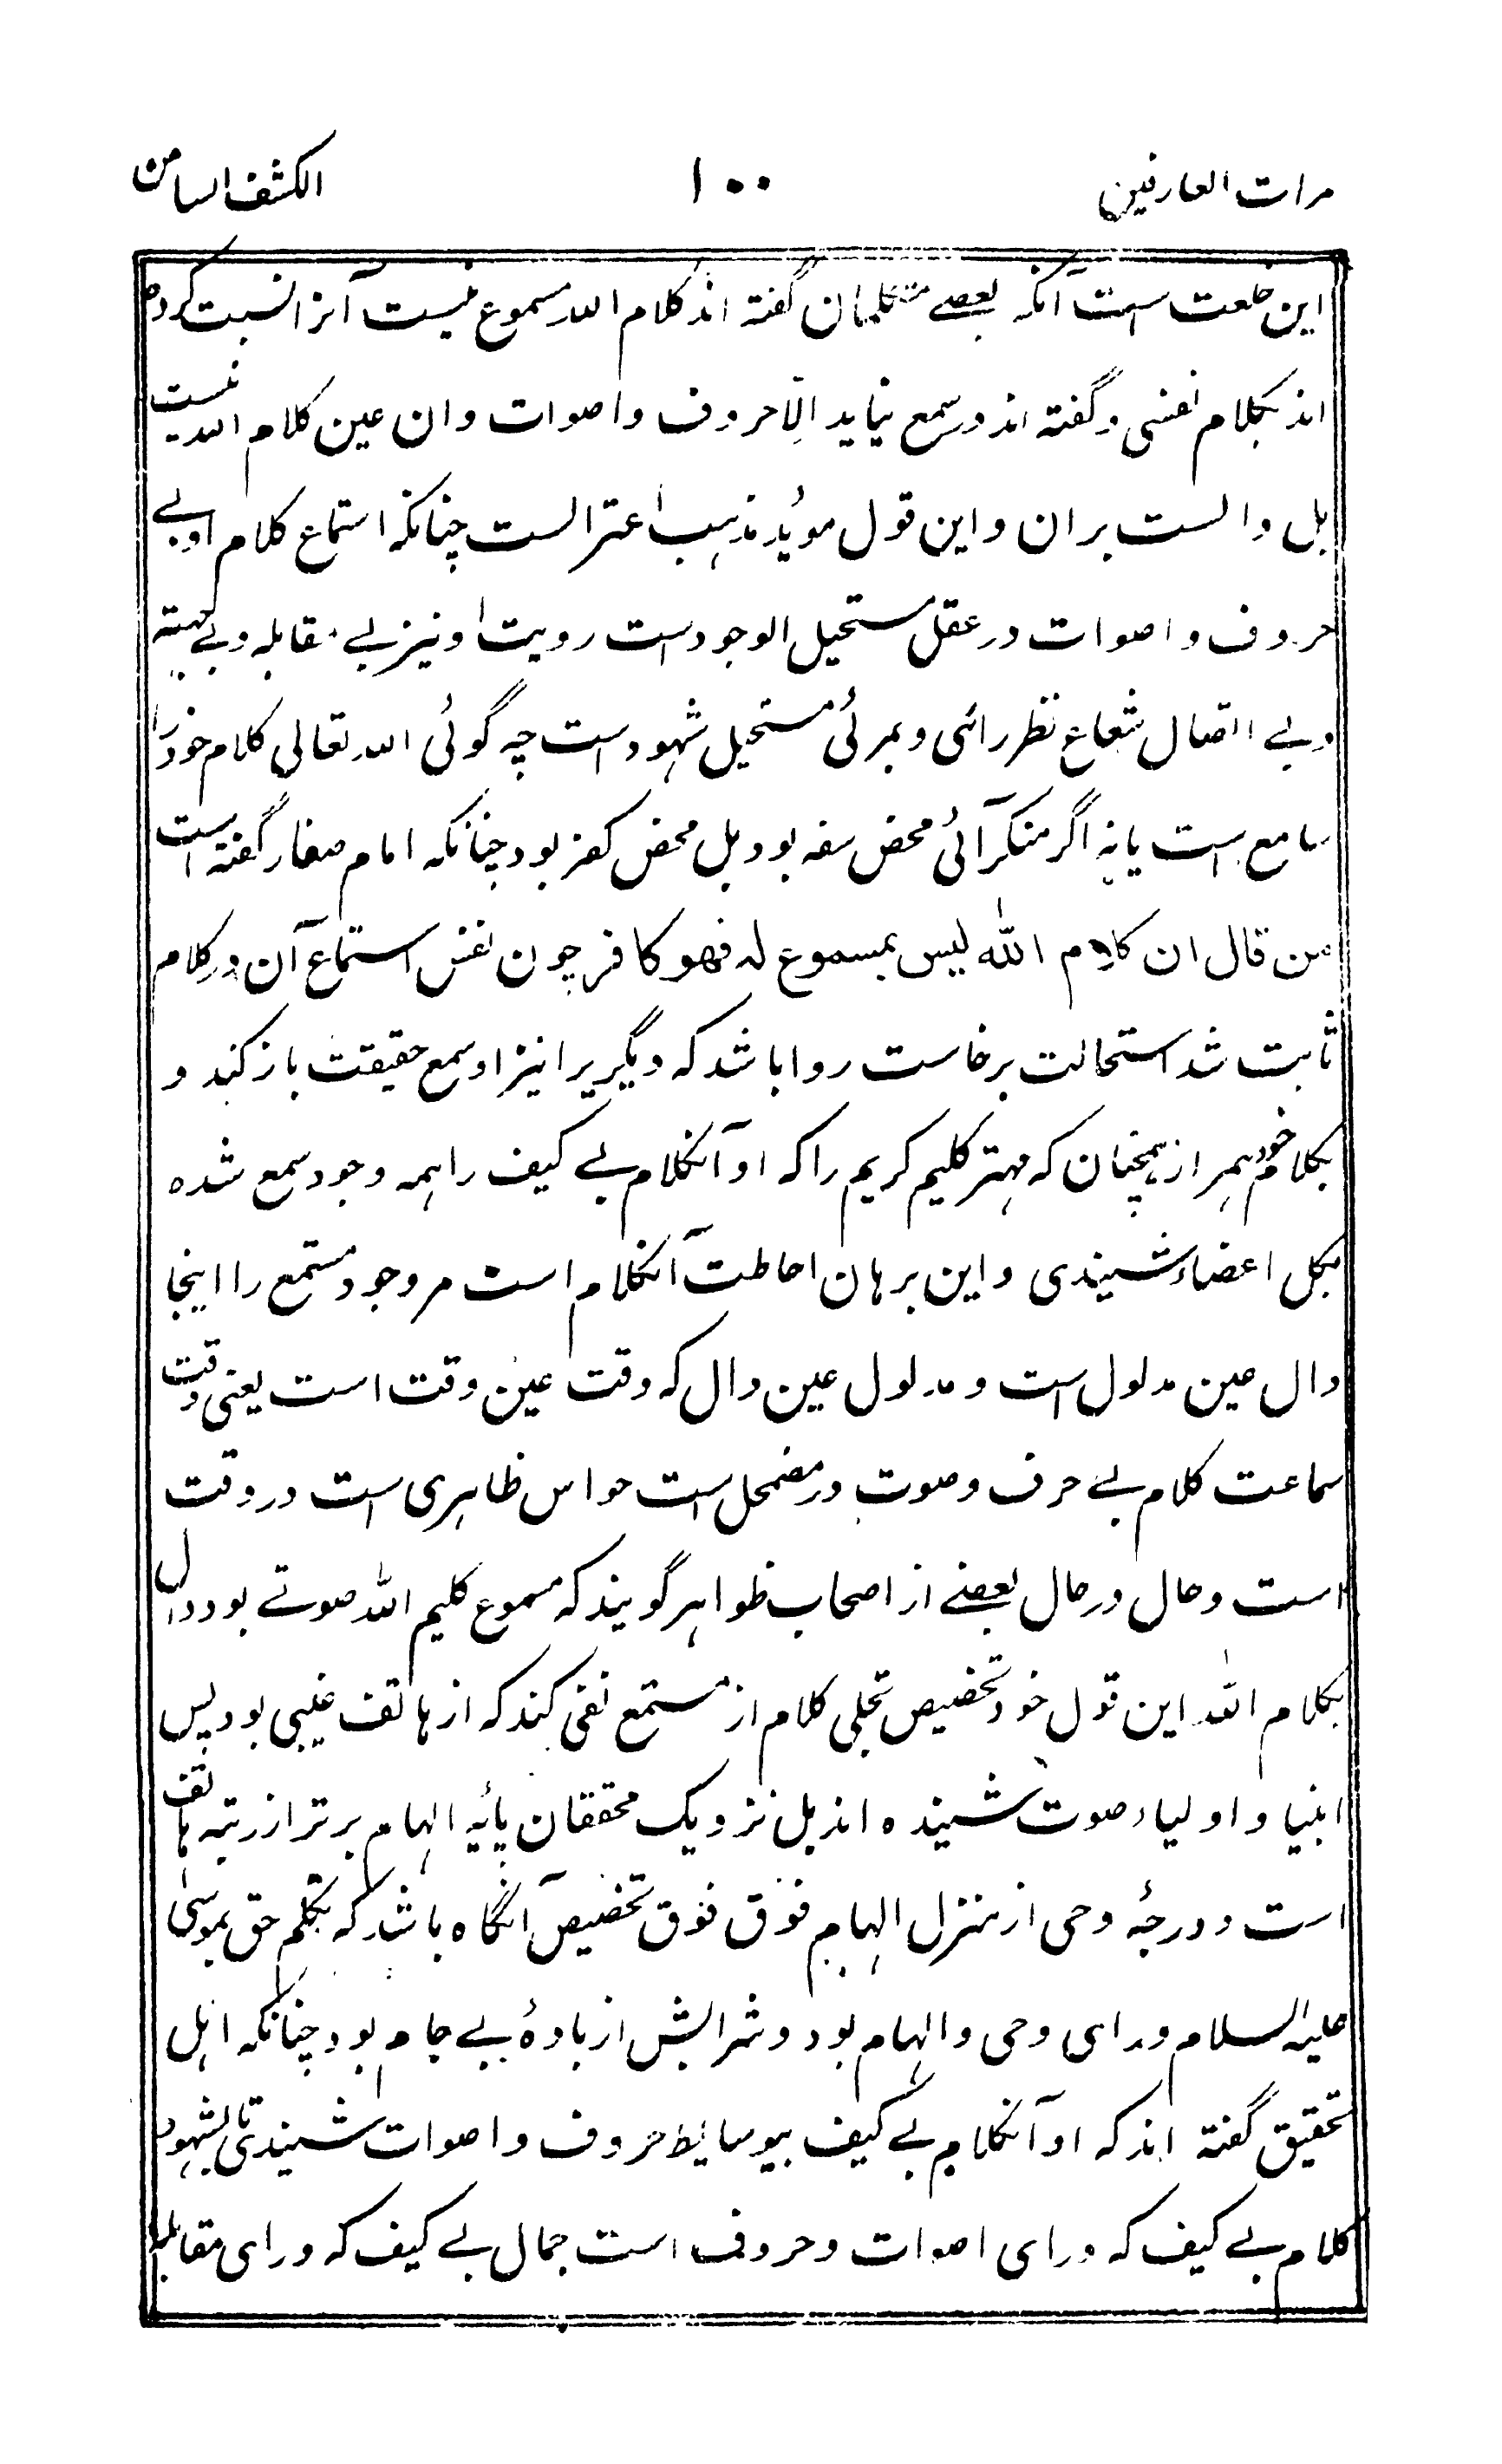 مرات العارفین ۱۰۰ الکشف السامن
این خلعت است آنکه بعضے متکلمان گفته اند کلام الله مسموع نیست آنرا نسبت کرده
اند بکلام نفسی و گفته اند در سمع نیاید الّا حروف و اصوات و ان عین کلام الله نیست
بل دالست بران و این قول موید مذہب اعتزالست چنانکه استماع کلام او بے
حروف و اصوات در عقل مستحیل الوجود است رویت او نیز بے مقابله و بے جهته
و بے اتصال شعاع نظر رائی و بمرئی مستحیل شهود است چه گوئی الله تعالی کلام خود را
سامع است یا نه اگر منکر آئی محض سفه بود بل محض کفر بود چنانکه امام صفار گفته است
من قال ان کلام الله لیس بمسموع له فهو کافر چون نفس استماع آن در کلام
ثابت شد استحالت برخاست روا باشد که دیگریرا نیز او سمع حقیقت باز کند و
بکلام خود همراز همچنان که مهتر کلیم کریم را که او آنکلام بے کیف را همه وجود سمع شده
بکل اعضاء شنیدی و این برهان احاطت آنکلام است مر وجود مستمع را اینجا
دال عین مدلول است و مدلول عین دال که وقت عین وقت است یعنی وقت
سماعت کلام بے حرف و صوت در مضمحل است حواس ظاهری است در وقت
است و حال در حال بعضے از اصحاب ظواهر گویند که مسموع کلیم الله صوتے بود دال
بکلام الله این قول خود تخصیص تجلی کلام از مستمع نفی کند که از هاتف غیبی بود پس
انبیا و اولیاء صوت شنیده اند بل نزدیک محققان پائه الهام برتر از رتبه هاتف
است و درجهٔ وحی از منزل الهام فوق فوق تخصیص آنگاه باشد که تکلم حق بموسیٰ
علیه السلام ورای وحی و الهام بود و شرابش از بادهٔ بے جام بود چنانکه اهل
تحقیق گفته اند که او آنکلام بے کیف بیوسایط حروف و اصوات شنیدی تا بشهود
کلام بے کیف که ورای اصوات و حروف است جمال بے کیف که ورای مقابله